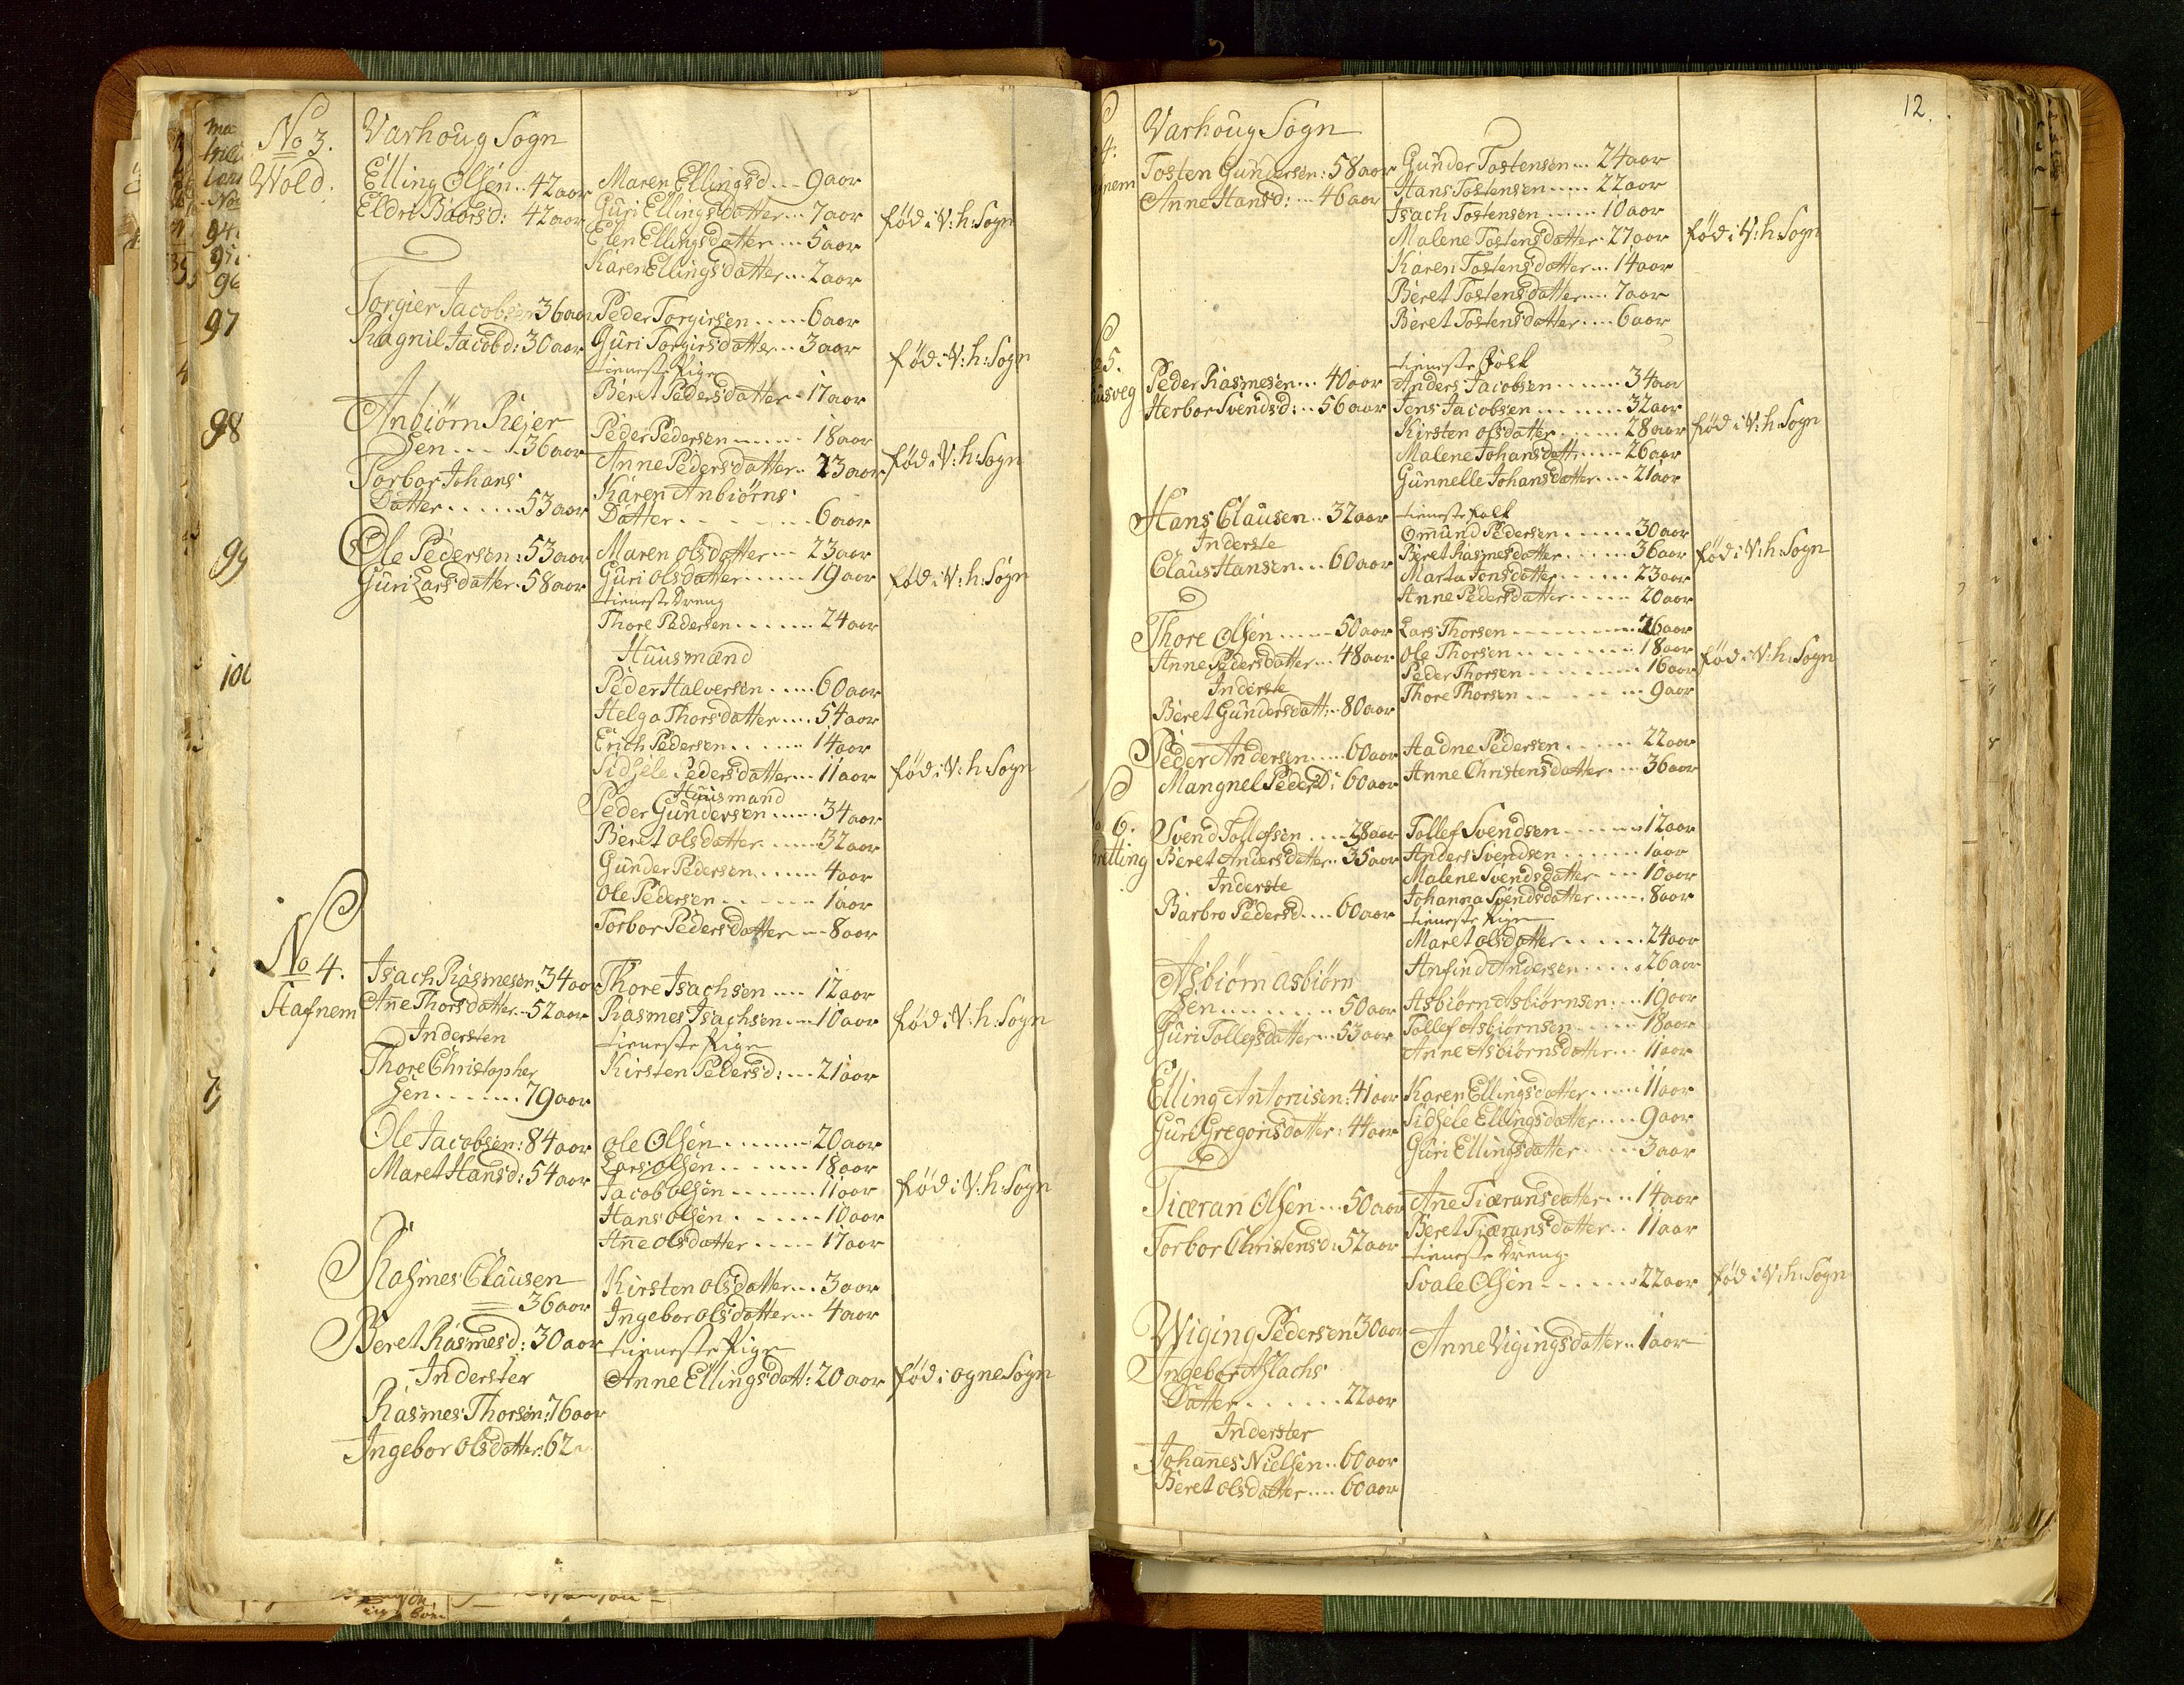 No 3.
Wold.
Varhoug Sogn
Elling Olsen .. 42 aar
Eldri Baarsd: 42 aar
Maren Ellingsd... 9 aar
Guri Ellings datter... 7 aar
Elen Ellings datter... 5 aar
Karen Ellings datter... 2 aar
fød i V: h: Sogn
97
Torgier Jacobsen 36 aar
Ragnil Jacobd: 30 aar
Peder Torgirsen..... 6 aar
Guri Torgirs datter... 3 aar
tieneste Pige
Beret Peders datter. 17 aar
fød i V: h: Sogn
98
Anbiørn Rejer
Sen... 36 aar
Torbor Johans
Datter...... 53 aar
Peder Pedersen...... 18 aar
Anne Peders datter.. 23 aar
Karen Anbiørns
Datter........ 6 aar
fød i V: h: Sogn
99
Ole Pedersen: 53 aar
Guri Lars datter. 58 aar
Maren ols datter... 23 aar
Guri ols datter...... 19 aar
tieneste Dreng
Thore Pedersen....... 24 aar
fød i V: h: Sogn
100
Huusmænd
Peder Halversen..... 60 aar
Helga Thors datter.... 54 aar
Erich Pedersen...... 14 aar
Sidsele Peders datter... 11 aar
fød i V: h: Sogn
Huusmand
Peder Gundersen..... 34 aar
Beret ols datter..... 32 aar
Gunder Pedersen..... 4 aar
Ole Pedersen...... 1 aar
Torbor Peders datter... 8 aar
No 4.
Hafnem
Isach Rasmesen: 34 aar
Anne Thors datter.. 52 aar
Indersten
Thore Christopher
Sen....... 79 aar
Thore Isachsen.... 12 aar
Rasmes Isachsen... 10 aar
tieneste Pige
Kirsten Pedersd:... 21 aar
fød i V: h: Sogn
Ole Jacobsen: 84 aar
Maret Hansd: 54 aar
ole Olsen....... 20 aar
Lars olsen....... 18 aar
Jacob olsen....... 11 aar
Hans olsen....... 10 aar
Anne ols datter..... 17 aar
fød i V: h: Sogn
Rasmes Clausen
36 aar
Beret Rasmesd: 30 aar
Inderster
Rasmes Thorsen: 76 aar
Ingebor ols datter: 62
Kirsten ols datter... 3 aar
Ingebor ols datter... 4 aar
tieneste Pige
Anne Ellings datt: 20 aar
fød i ogne Sogn
12.
Varhoug Sogn
4.
Tosten Gundersen: 58 aar
Anne Hansd:... 46 aar
Gunder Tostensen... 24 aar
Hans Tostensen..... 22 aar
Isach Tostensen...... 10 aar
Malene Tostens datter. 27 aar
Karen Tostens datter... 14 aar
Beret Tostens datter.... 7 aar
Beret Tostens datter.... 6 aar
fød i V: h: Sogn
5.
Peder Rasmesen... 40 aar
Herbor Svendsd:.. 56 aar
tieneste Folk
Anders Jacobsen...... 34 aar
Jens Jacobsen........ 32 aar
Kirsten ols datter...... 28 aar
Malene Johans datt...... 26 aar
Gunnelle Johans datter.... 21 aar
fød i V: h: Sogn
Hans Clausen.. 32 aar
Inderste
Claus Hansen... 60 aar
tieneste folk
Omund Pedersen...... 30 aar
Beret Rasmes datter...... 36 aar
Marta Jons datter...... 23 aar
Anne Peders datter...... 20 aar
fød i V: h: Sogn
Thore Olsen..... 50 aar
Anne Peders datter... 48 aar
Inderste
Beret Gunders datt:.. 80 aar
Lars Thorsen......... 26 aar
Ole Thorsen......... 18 aar
Peder Thorsen........ 16 aar
Thore Thorsen........ 9 aar
fød i V: h: Sogn
Peder Andersen..... 60 aar
Mangnel Pedersd: 60 aar
Aadne Pedersen...... 22 aar
Anne Christens datter.... 36 aar
6.
Svend Tollefsen.... 38 aar
Beret Anders datter.. 35 aar
Inderste
Barbro Pedersd.... 60 aar
Tollef Svendsen........ 12 aar
Anders Svendsen....... 1 aar
Malene Svends datter.... 10 aar
Johanna Svends datter..... 8 aar
tieneste Pige
Maret ols datter....... 24 aar
Asbiørn asbiørn
Sen........ 50 aar
Guri Tollefs datter... 53 aar
Anfind Andersen..... 26 aar
Asbiørn Asbiørnsen.... 19 aar
Tollef Asbiørnsen..... 18 aar
Anne Asbiørns datter... 11 aar
Elling Antonisen: 41 aar
Guri Gregoris datter: 44 aar
Karen Ellings datter..... 11 aar
Sidsele Ellings datter.... 9 aar
Guri Ellings datter..... 3 aar
Tiæran Olsen... 50 aar
Torbor Christensd: 52 aar
Ane Tiærans datter... 14 aar
Beret Tiærans datter.. 11 aar
tieneste Dreng.
Svale Olsen........ 22 aar
fød i V: h: Sogn
Wiging Pedersen 30 aar
Ingebor Aslachs
Datter....... 22 aar
Inderster
Johannes Nielsen.. 60 aar
Beret ols datter.... 60 aar
Anne Vigings datter.. 1 aar